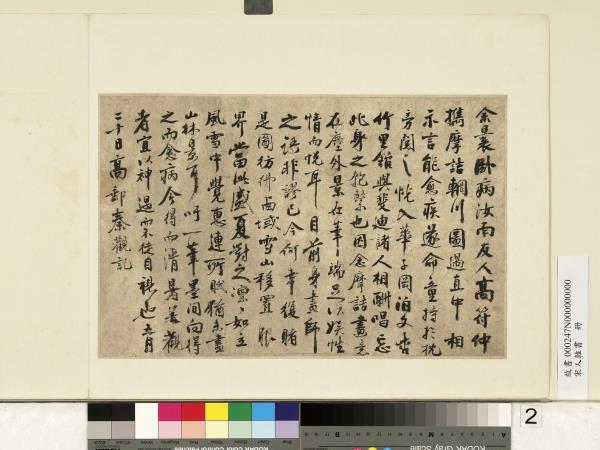 余曩卧病汝南友人高符仲
攜摩詰輞川圖過直中相
示言能愈疾遂命童持於枕
旁閱之恍入華子岡泊文杏
竹里館與斐迪諸人相酬唱忘
此身之匏繫也因念摩詰畫意
在塵外景在筆端足以娱性
情而悅耳目前身畫師
之語非謬已今何幸復睹
是圖彷彿西域雪山移置眼
界當此盛夏對之凛凛如立
風雪中覺惠連所賦猶未盡
山林景耳吁一筆墨間向得
之而愈病今得而清暑善觀
者宜以神遇而不徒目視也五月
二十日高郵秦觀記
故書 000247N000000000
宋人雜書 冊
2
KODAK Gray Scale